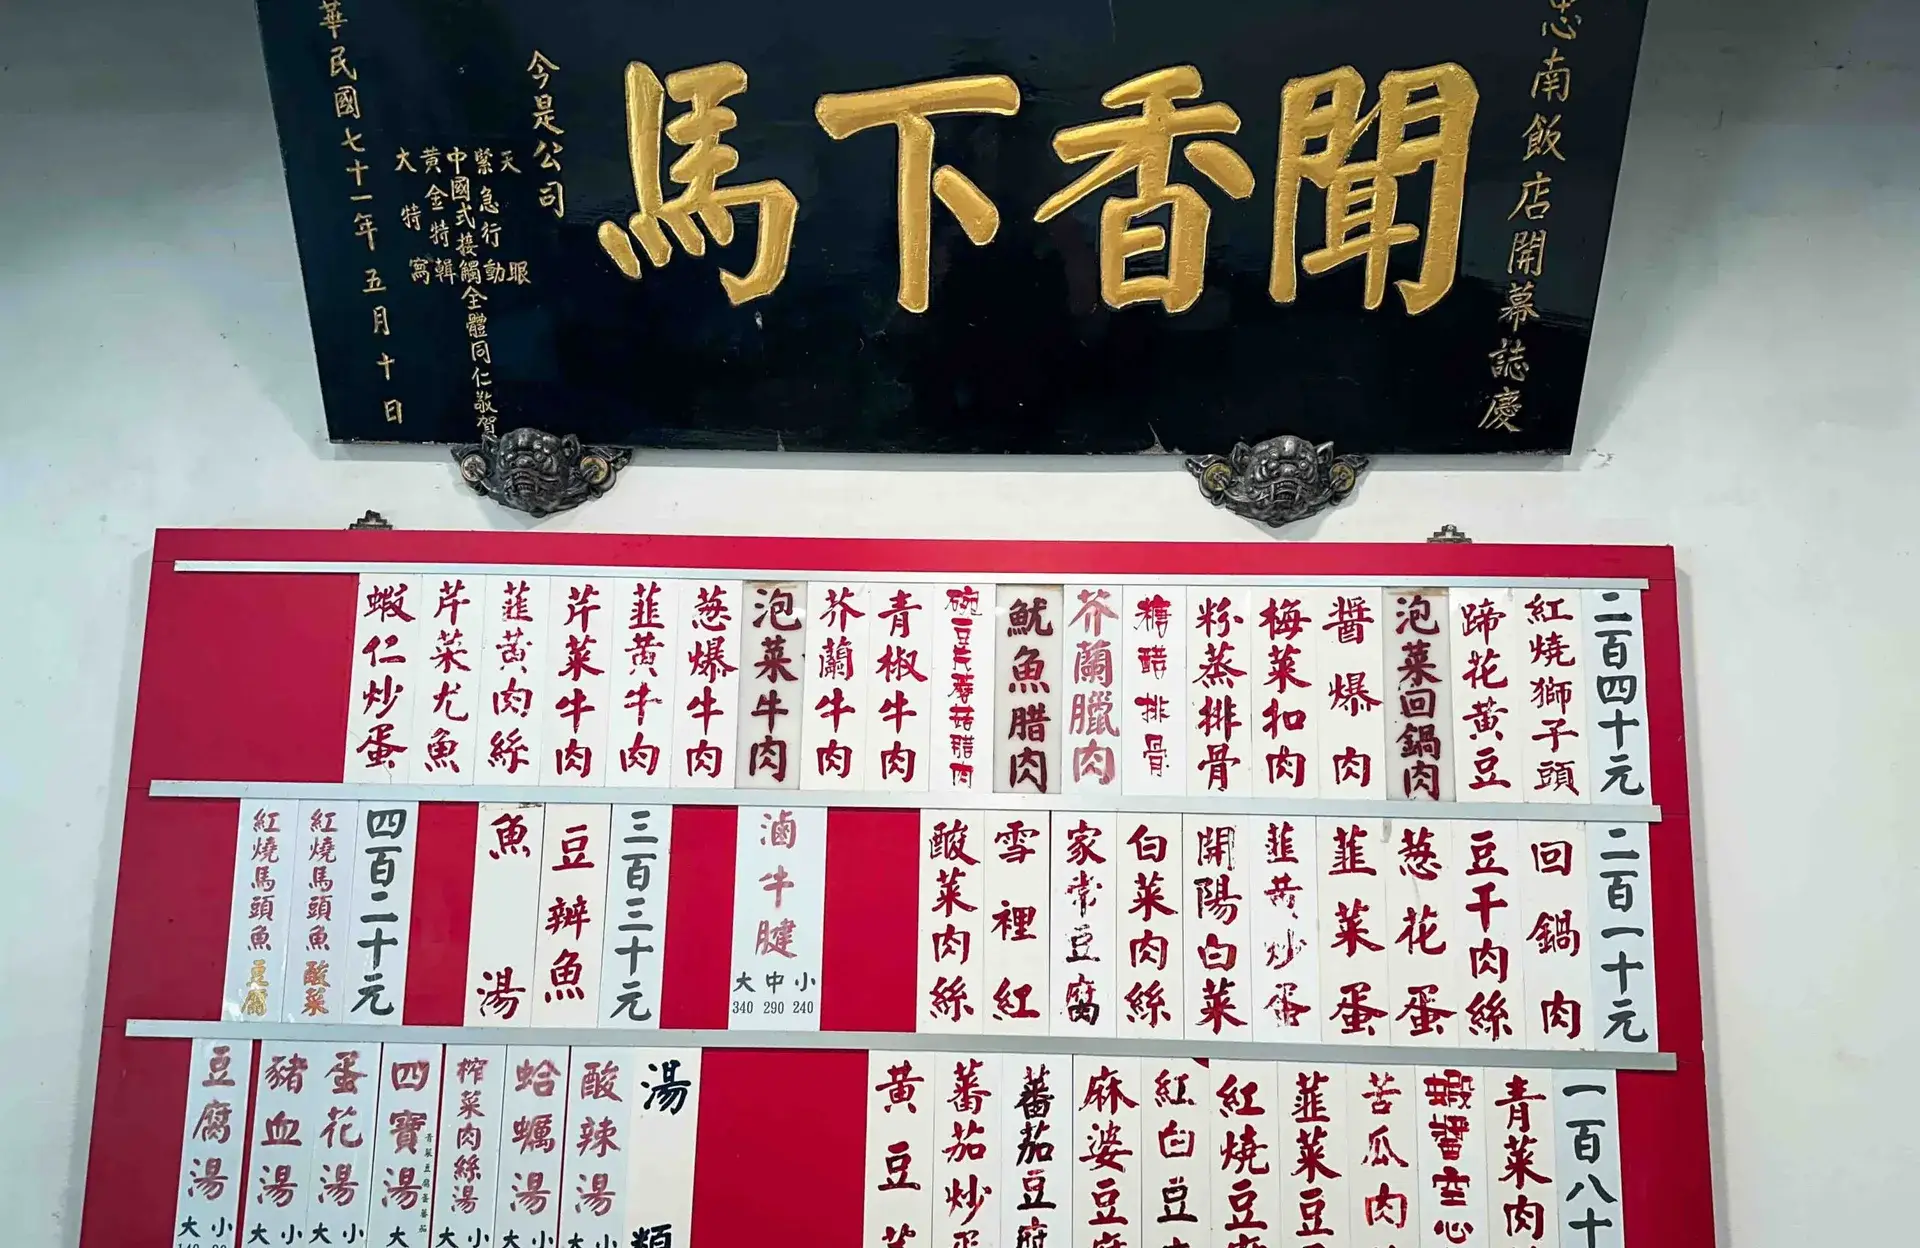 忠南飯店開幕誌慶
聞香下馬
今是公司
天眼
緊急行動
中國式接觸全體同仁敬賀
黃金特輯
大特寫
華民國七十一年五月十日
二百四十元
紅燒獅子頭
蹄花黃豆
泡菜回鍋肉
醬爆肉
梅菜扣肉
粉蒸排骨
糖醋排骨
芥蘭臘肉
魷魚腊肉
碗豆莢蘑菇腊肉
青椒牛肉
芥蘭牛肉
泡菜牛肉
葱爆牛肉
韮黃牛肉
芹菜牛肉
韮黃肉絲
芹菜尤魚
蝦仁炒蛋
二百一十元
回鍋肉
豆干肉絲
葱花蛋
韮菜蛋
韮黃炒蛋
開陽白菜
白菜肉絲
家常豆腐
雪裡紅
酸菜肉絲
滷牛腱
大中小
340 290 240
三百三十元
豆瓣魚
魚湯
四百二十元
紅燒馬頭魚酸菜
紅燒馬頭魚豆腐
一百八十
青菜肉
蝦醬空心
苦瓜肉
韮菜豆
紅燒豆
紅白豆
麻婆豆
蕃茄豆腐
蕃茄炒蛋
黃豆芽
湯類
酸辣湯
大小
蛤蠣湯
大小
榨菜肉絲湯
大小
四寶湯
大
蛋花湯
大小
豬血湯
大小
豆腐湯
大小